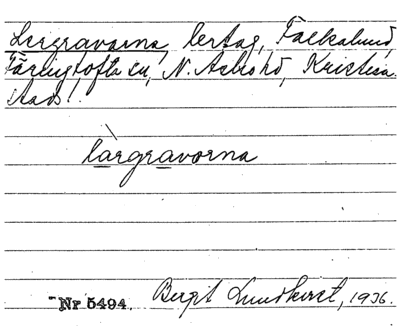 Lergravarna, lertag, Falkalund,
Färingtofta sn, N. Åsbo hd, Kristian
stads l.
làrgravorna
Nr 5494. Birgit Lundkvist, 1936.